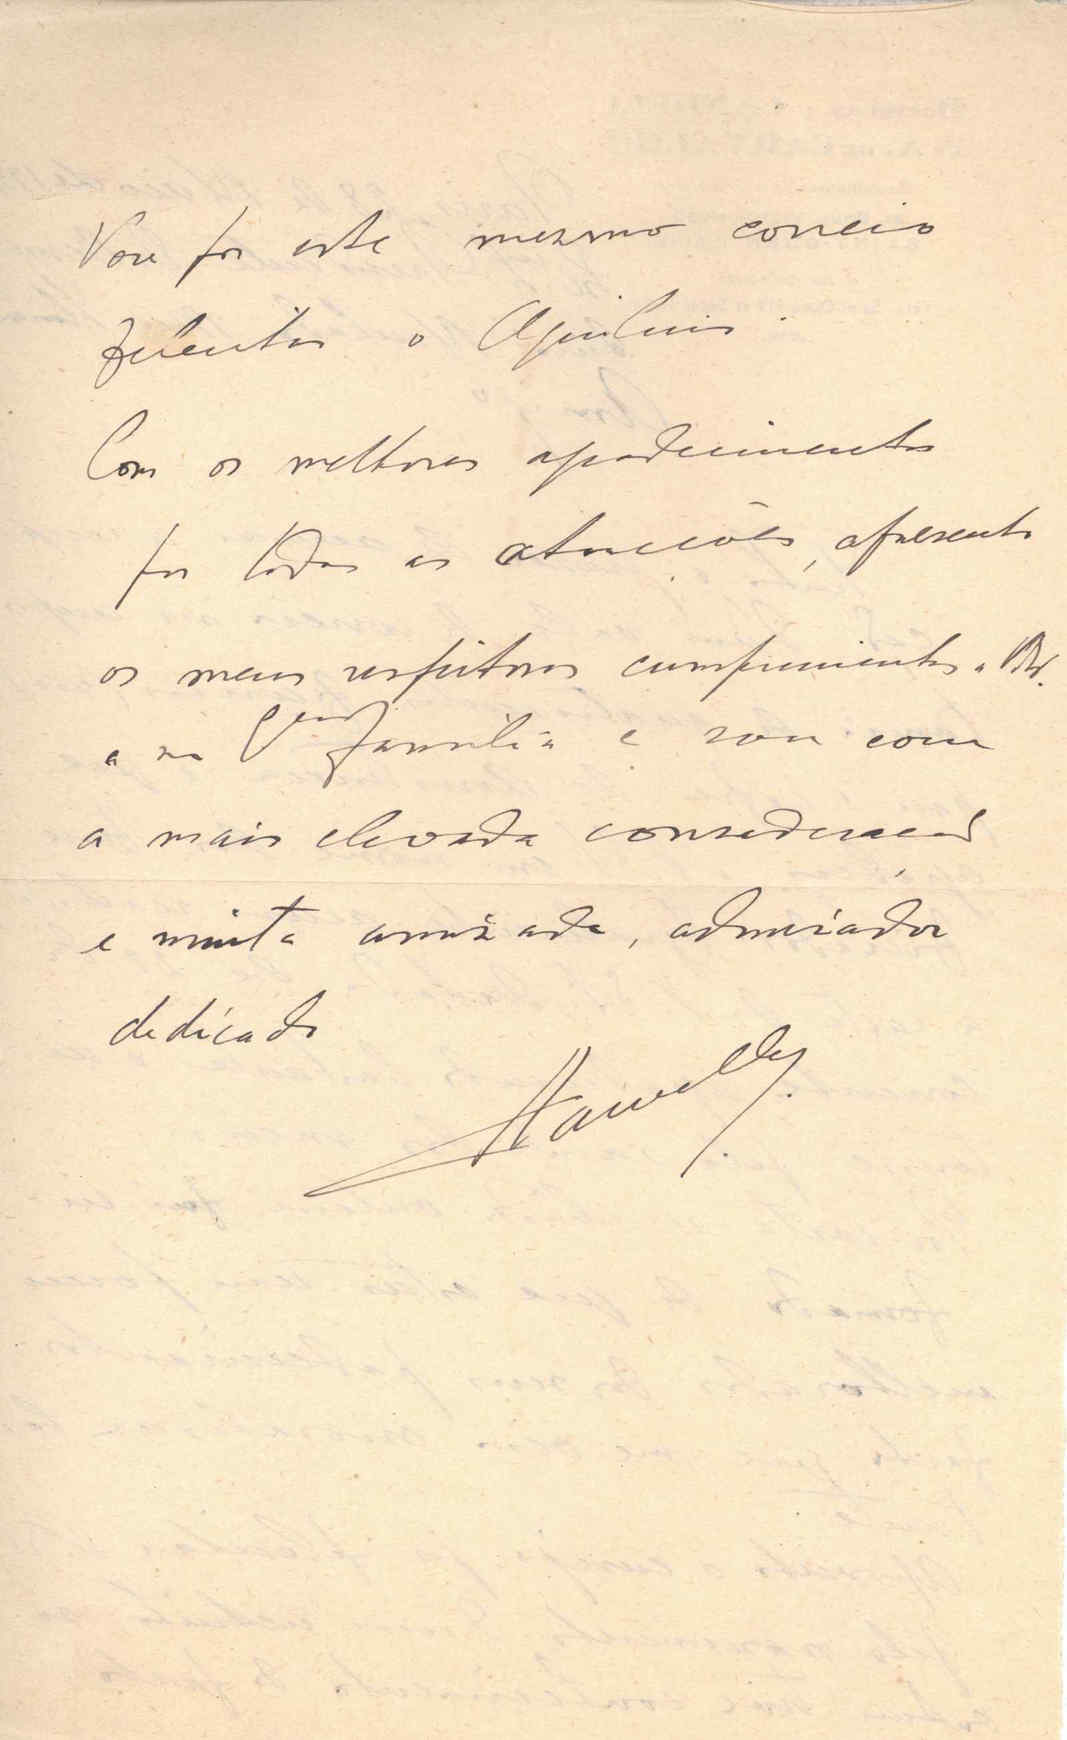 Vou por este mesmo correio
felicitar o Aquilino.
Com os melhores agradecimentos
por todas as atenções, apresento
os meus respeitosos cumprimentos a V.
e sua Exma família e sou com
a mais elevada consideração
e muita amizade, admirador
dedicado